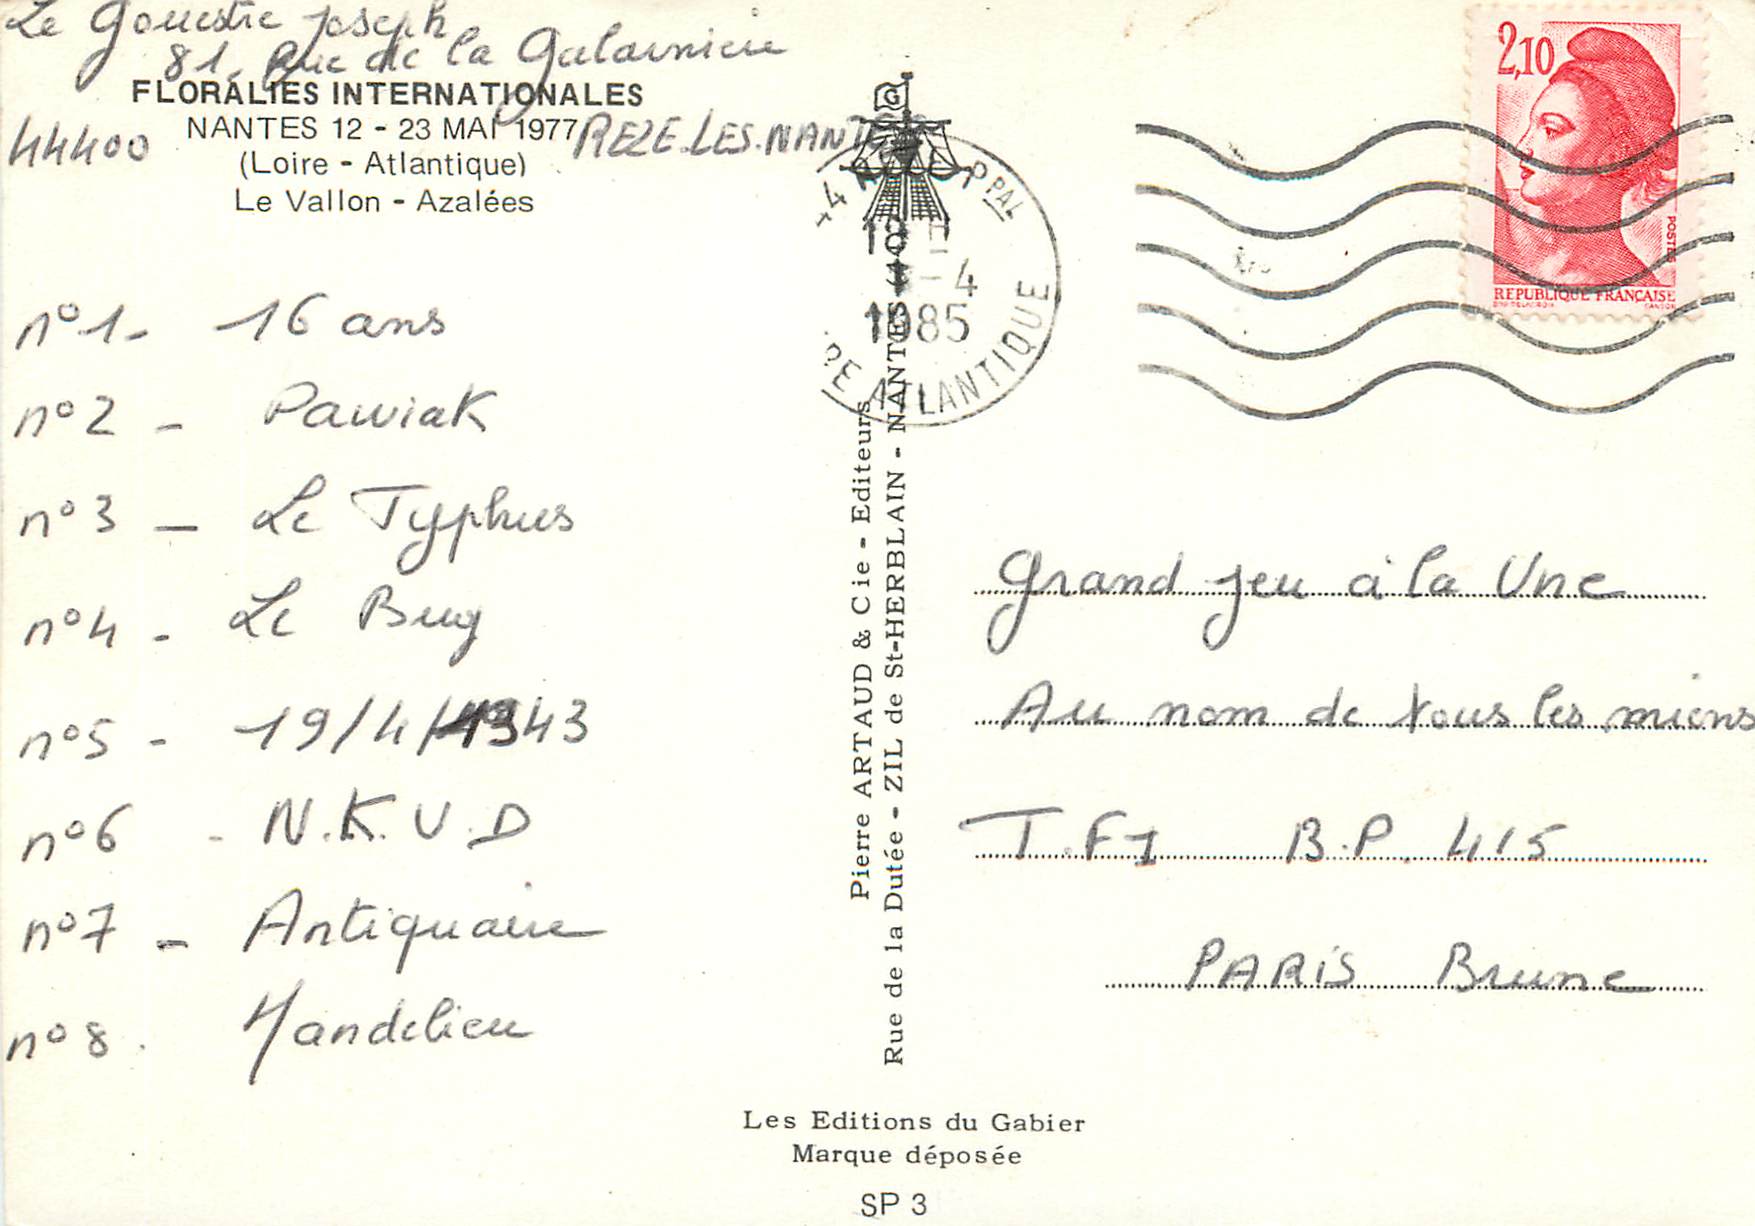 Le Gouestre Joseph
81, Rue de la Galarnière
FLORALIES INTERNATIONALES
NANTES 12 - 23 MAI 1977
44400 REZE.LES.NANTES
(Loire - Atlantique)
Le Vallon - Azalées
n°1- 16 ans
n°2 - Pawiak
n°3 - Le Typhus
n°4 - Le Bug
n°5 - 19/4/1943
n°6 - N.K.V.D
n°7 - Antiquaire
n°8. Mandelieu
Pierre ARTAUD & Cie - Editeurs
Rue de la Dutée - ZIL de St-HERBLAIN - NANTES
G
44 PPAL
18H
-4
1985
RE ATLANTIQUE
2,10
POSTES
REPUBLIQUE FRANÇAISE
Grand jeu à la Une
Au nom de tous les miens
T.F1 B.P. 415
PARIS Brune
Les Editions du Gabier
Marque déposée
SP 3